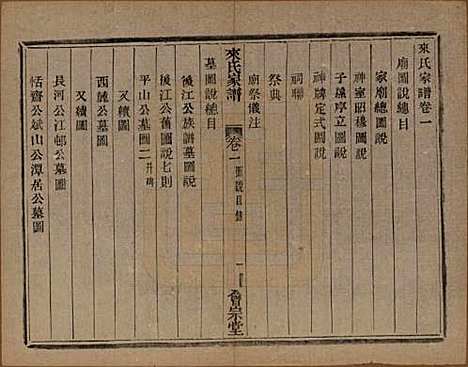 來氏家譜卷一
廟圖說總目
家廟總圖說
神室昭穆圖說
子孫序立圖說
神牌定式圖說
祠聯
祭典
廟祭儀注
來氏家譜 卷一 圖說目錄 一 會宗堂
墓圖說總目
後江公族譜墓圖說
後江公舊圖說七則
平山公墓圖二 升碑
又續圖
西麓公墓圖
又續圖
長河公江邨公墓圖
恬齋公斌山公潭居公墓圖